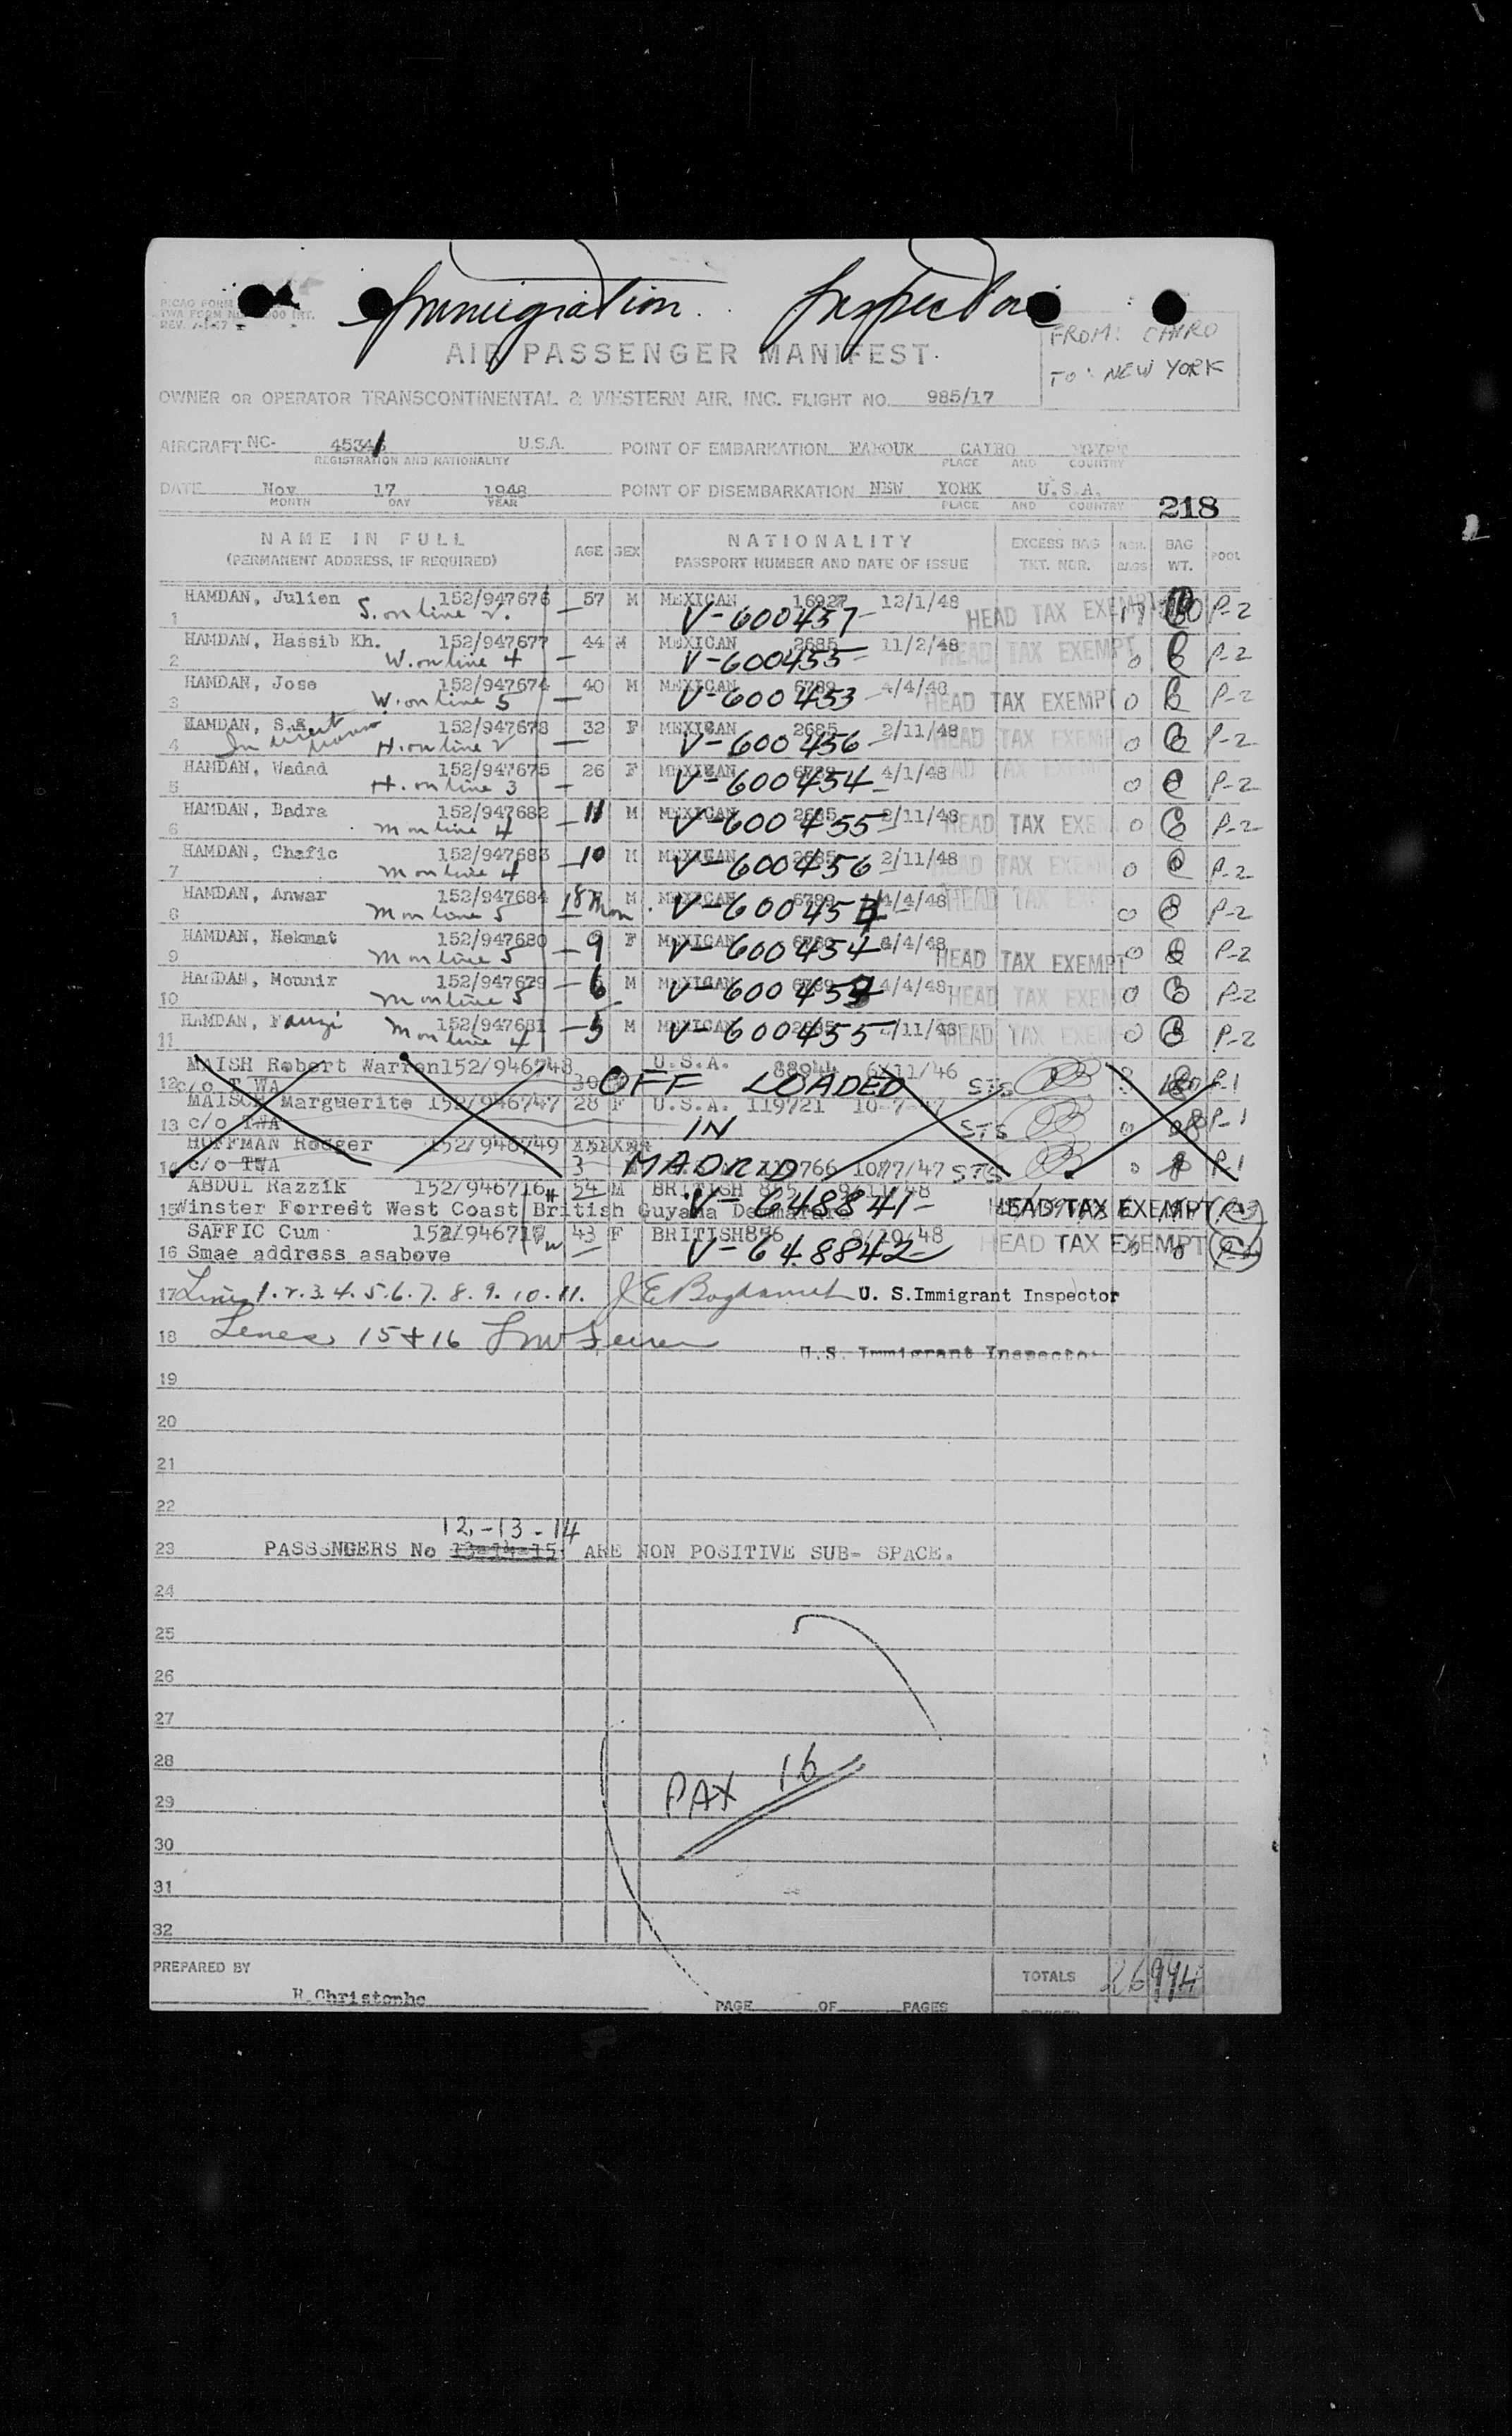 Immigration Inspector
PICAO FORM
TWA FORM NO. 000 INT.
REV.
FROM: CAIRO
TO: NEW YORK
AIR PASSENGER MANIFEST
OWNER OR OPERATOR TRANSCONTINENTAL & WESTERN AIR, INC. FLIGHT NO. 985/17
AIRCRAFT NC- 45341 U.S.A. POINT OF EMBARKATION FAROUK CAIRO EGYPT
REGISTRATION AND NATIONALITY PLACE AND COUNTRY
DATE Nov 17 1948 POINT OF DISEMBARKATION NEW YORK U.S.A.
MONTH DAY YEAR PLACE AND COUNTRY
218
NAME IN FULL AGE SEX NATIONALITY EXCESS BAG NBR. BAG POOL
(PERMANENT ADDRESS, IF REQUIRED) PASSPORT NUMBER AND DATE OF ISSUE TKT. NBR. BAGS WT.
HAMDAN, Julien 152/947676 57 M MEXICAN 16927 12/1/48
1 S. on line 2. V-600457 HEAD TAX EXEMPT 17 P-2
HAMDAN, Hassib Kh. 152/947677 44 M MEXICAN 2685 11/2/48
2 W. on line 4 V-600455 HEAD TAX EXEMPT 0 P-2
HAMDAN, Jose 152/947674 40 M MEXICAN 6789 4/4/48
3 W. on line 5 V-600453 HEAD TAX EXEMPT 0 P-2
HAMDAN, S.a. 152/947678 32 F MEXICAN 2685 2/11/48
4 In transit H. on line 2 V-600456 HEAD TAX EXEMPT 0 P-2
HAMDAN, Wadad 152/947675 26 F MEXICAN 6789 4/1/48
5 H. on line 3 V-600454 HEAD TAX EXEMPT 0 P-2
HAMDAN, Badra 152/947682 11 M MEXICAN 2685 2/11/48
6 M on line 4 V-600455 HEAD TAX EXEMPT 0 P-2
HAMDAN, Chafic 152/947683 10 M MEXICAN 2685 2/11/48
7 M on line 4 V-600456 HEAD TAX EXEMPT 0 P-2
HAMDAN, Anwar 152/947684 18 Mon. M MEXICAN 6789 4/4/48
8 M on line 5 V-600454 HEAD TAX EXEMPT 0 P-2
HAMDAN, Hekmat 152/947680 9 F MEXICAN 6789 4/4/48
9 M on line 5 V-600454 HEAD TAX EXEMPT 0 P-2
HAMDAN, Mounir 152/947679 6 M MEXICAN 6789 4/4/48
10 M on line 5 V-600454 HEAD TAX EXEMPT 0 P-2
HAMDAN, Fauzi 152/947681 5 M MEXICAN 2685 2/11/48
11 M on line 4 V-600455 HEAD TAX EXEMPT 0 P-2
MAISH Robert Warren 152/946748 30 U.S.A. 88944 6/11/46
12 c/o TWA OFF LOADED STS P-1
MAISCH Marguerite 152/946747 28 F U.S.A. 119721 10-7-47
13 c/o TWA IN STS P-1
HOFFMAN Rodger 152/946749
14 c/o TWA 3 M MADRID 119766 10/7/47 STS P-1
ABDUL Razzik 152/946716 H 54 M BRITISH 855 9/11/48
15 Winster Forrest West Coast British Guyana Demarara V-648841 HEAD TAX EXEMPT
SAFFIC Cum 152/946717 W 43 F BRITISH 856 9/10/48
16 Smae address asabove V-648842 HEAD TAX EXEMPT
17 Lines 1.2.3.4.5.6.7.8.9.10.11. U. S. Immigrant Inspector
18 Lines 15 + 16
U.S. Immigrant Inspector
19
20
21
22
12-13-14
23 PASSSNGERS No 13-14-15 ARE NON POSITIVE SUB- SPACE.
24
25
26
27
28
PAX 16
29
30
31
32
PREPARED BY TOTALS 26 994
R.Christophe PAGE OF PAGES